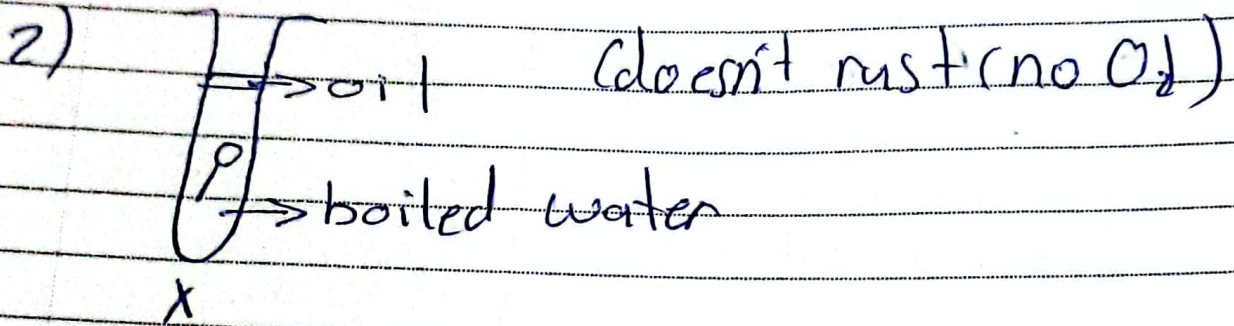 2)
→oil (doesn't rust (no O2)
→boiled water
X